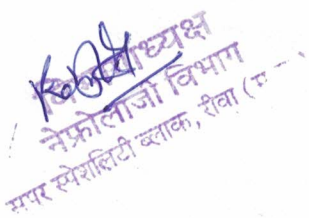 विभागाध्यक्ष
नेफ्रोलॉजी विभाग
सुपर स्पेशलिटी ब्लाक, रीवा (म